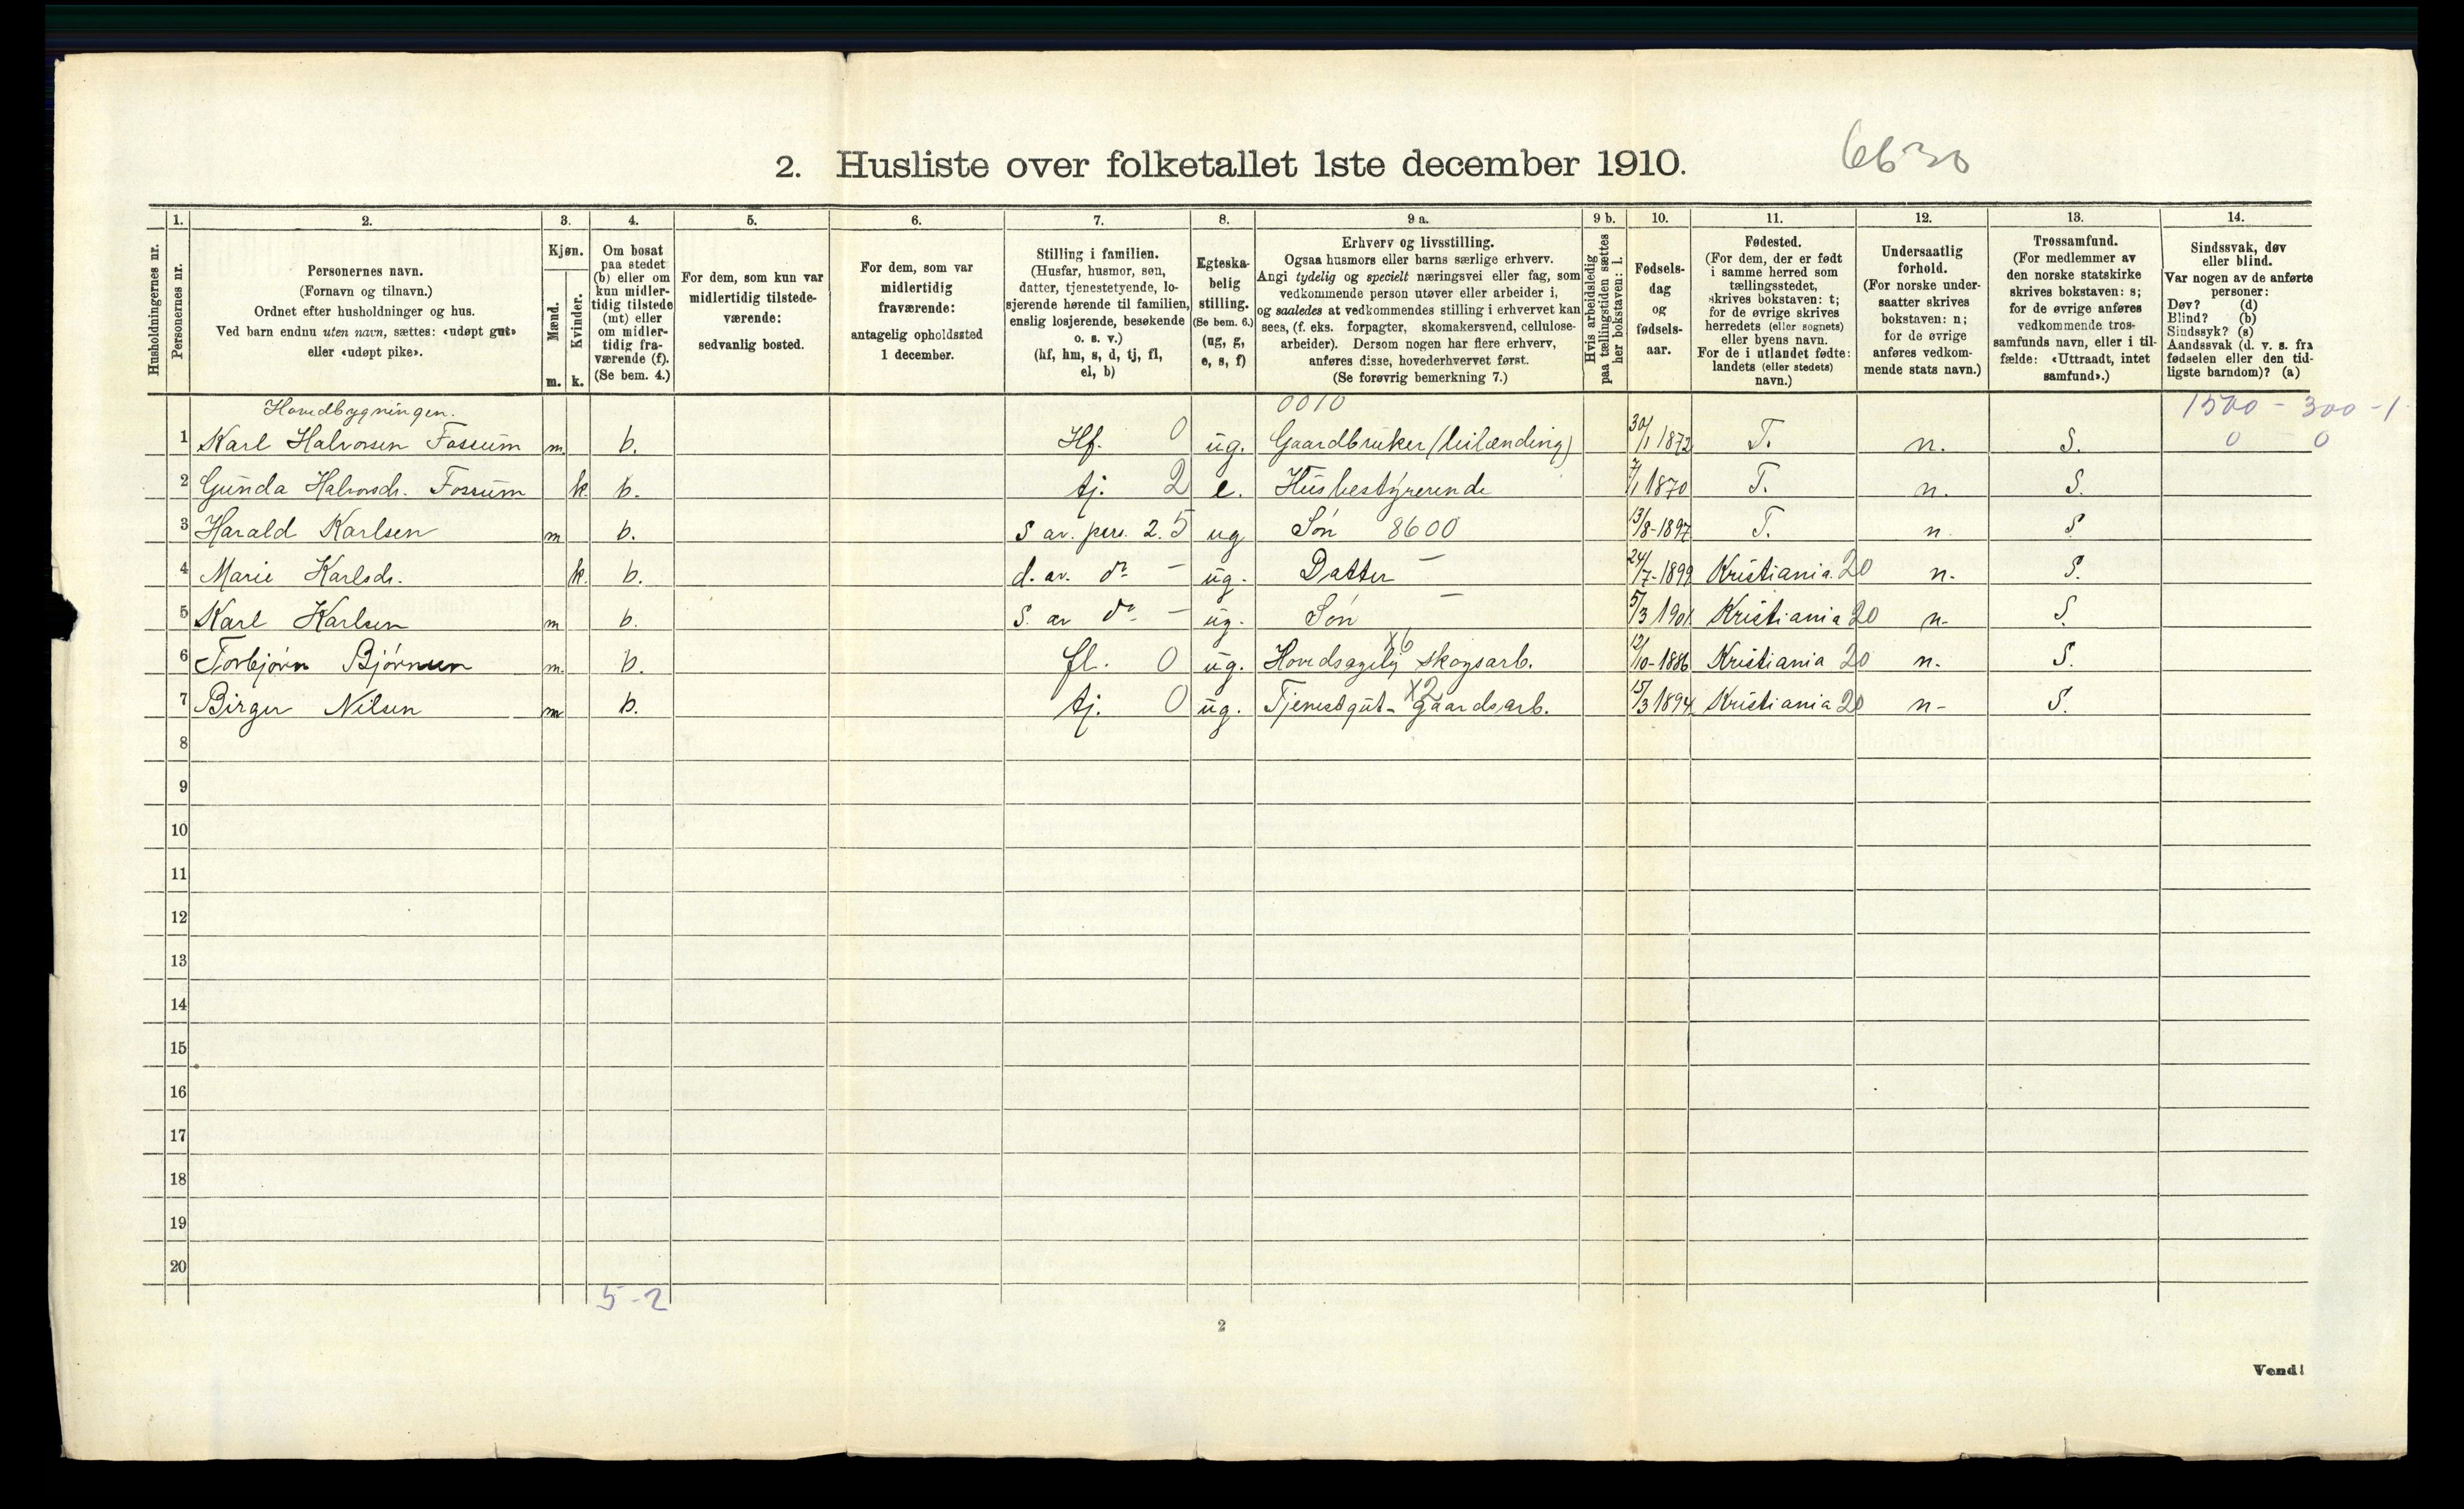 2. Husliste over folketallet 1ste december 1910.
6630
Husholdningernes nr.
1.
Personernes nr.
2.
Personernes navn.
(Fornavn og tilnavn.)
Ordnet efter husholdninger og hus.
Ved barn endnu uten navn, sættes: «udøpt gut»
eller «udøpt pike».
3.
Kjøn.
Mænd.
Kvinder.
m. k.
4.
Om bosat
paa stedet
(b) eller om
kun midler-
tidig tilstede
(mt) eller
om midler-
tidig fra-
værende (f).
(Se bem. 4.)
5.
For dem, som kun var
midlertidig tilstede-
værende:
sedvanlig bosted.
6.
For dem, som var
midlertidig
fraværende:
antagelig opholdssted
1 december.
7.
Stilling i familien.
(Husfar, husmor, søn,
datter, tjenestetyende, lo-
sjerende hørende til familien,
enslig losjerende, besøkende
o. s. v.)
(hf, hm, s, d, tj, fl,
el, b)
8.
Egteska-
belig
stilling.
(Se bem. 6.)
(ug, g,
e, s, f)
9 a.
Erhverv og livsstilling.
Ogsaa husmors eller barns særlige erhverv.
Angi tydelig og specielt næringsvei eller fag, som
vedkommende person utøver eller arbeider i,
og saaledes at vedkommendes stilling i erhvervet kan
sees, (f. eks. forpagter, skomakersvend, cellulose-
arbeider). Dersom nogen har flere erhverv,
anføres disse, hovederhvervet først.
(Se forøvrig bemerkning 7.)
9 b.
Hvis arbeidsledig
paa tællingstiden sættes
her bokstaven: l.
10.
Fødsels-
dag
og
fødsels-
aar.
11.
Fødested.
(For dem, der er født
i samme herred som
tællingsstedet,
skrives bokstaven: t;
for de øvrige skrives
herredets (eller sognets)
eller byens navn.
For de i utlandet fødte:
landets (eller stedets)
navn.)
12.
Undersaatlig
forhold.
(For norske under-
saatter skrives
bokstaven: n;
for de øvrige
anføres vedkom-
mende stats navn.)
13.
Trossamfund.
(For medlemmer av
den norske statskirke
skrives bokstaven: s;
for de øvrige anføres
vedkommende tros-
samfunds navn, eller i til-
fælde: «Uttraadt, intet
samfund».)
14.
Sindssvak, døv
eller blind.
Var nogen av de anførte
personer:
Døv? (d)
Blind? (b)
Sindssyk? (s)
Aandssvak (d. v. s. fra
fødselen eller den tid-
ligste barndom)? (a)
Hovedbygningen. 0010 1500 - 300 - 1
1 Karl Halvorsen Fossum m b. Hf. 0 ug. Gaardbruker (leilænding) 30/1 1872 T. n. S. 0 0
2 Gunda Halvorsdr. Fossum k. b. tj. 2 e. Husbestyrerende 7/1 1870 T. n. S.
3 Harald Karlsen m b. S av. pers. 2. 5 ug Søn 8600 13/8-1897 T. n. S
4 Marie Karlsdr. k. b. d. av. do - ug. Datter - 24/7-1899 Kristiania. 20 n. S.
5 Karl Karlsen m b. S. av do - ug. Søn - 5/3 1901 Kristiania 20 n- S.
6 Torbjørn Bjørnsen m. b. fl. 0 ug. skogsarb. X6 12/10-1886 Kristiania 20 n. S.
7 Birger Nilsen m b. tj. 0 ug. Tjenestgut - gaardsarb. X2 15/3 1894 Kristiania 20 n- S.
8
9
10
11
12
13
14
15
16
17
18
19
20
5-2
2
Vend!